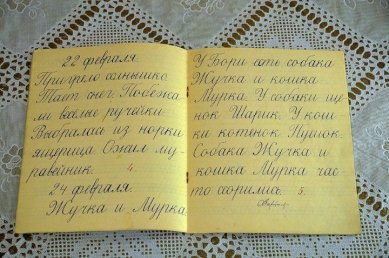 22 февраля.
Пригрело солнышко.
Тает снег. Побежа-
ли весёлые ручейки.
Выбралась из норки
ящерица. Ожил му-
равейник. 4.
24 февраля.
Жучка и Мурка.
У Бори есть собака
Жучка и кошка
Мурка. У собаки ще-
нок Шарик. У кош-
ки котёнок Пушок.
Собака Жучка и
кошка Мурка час-
то ссорились. 5.